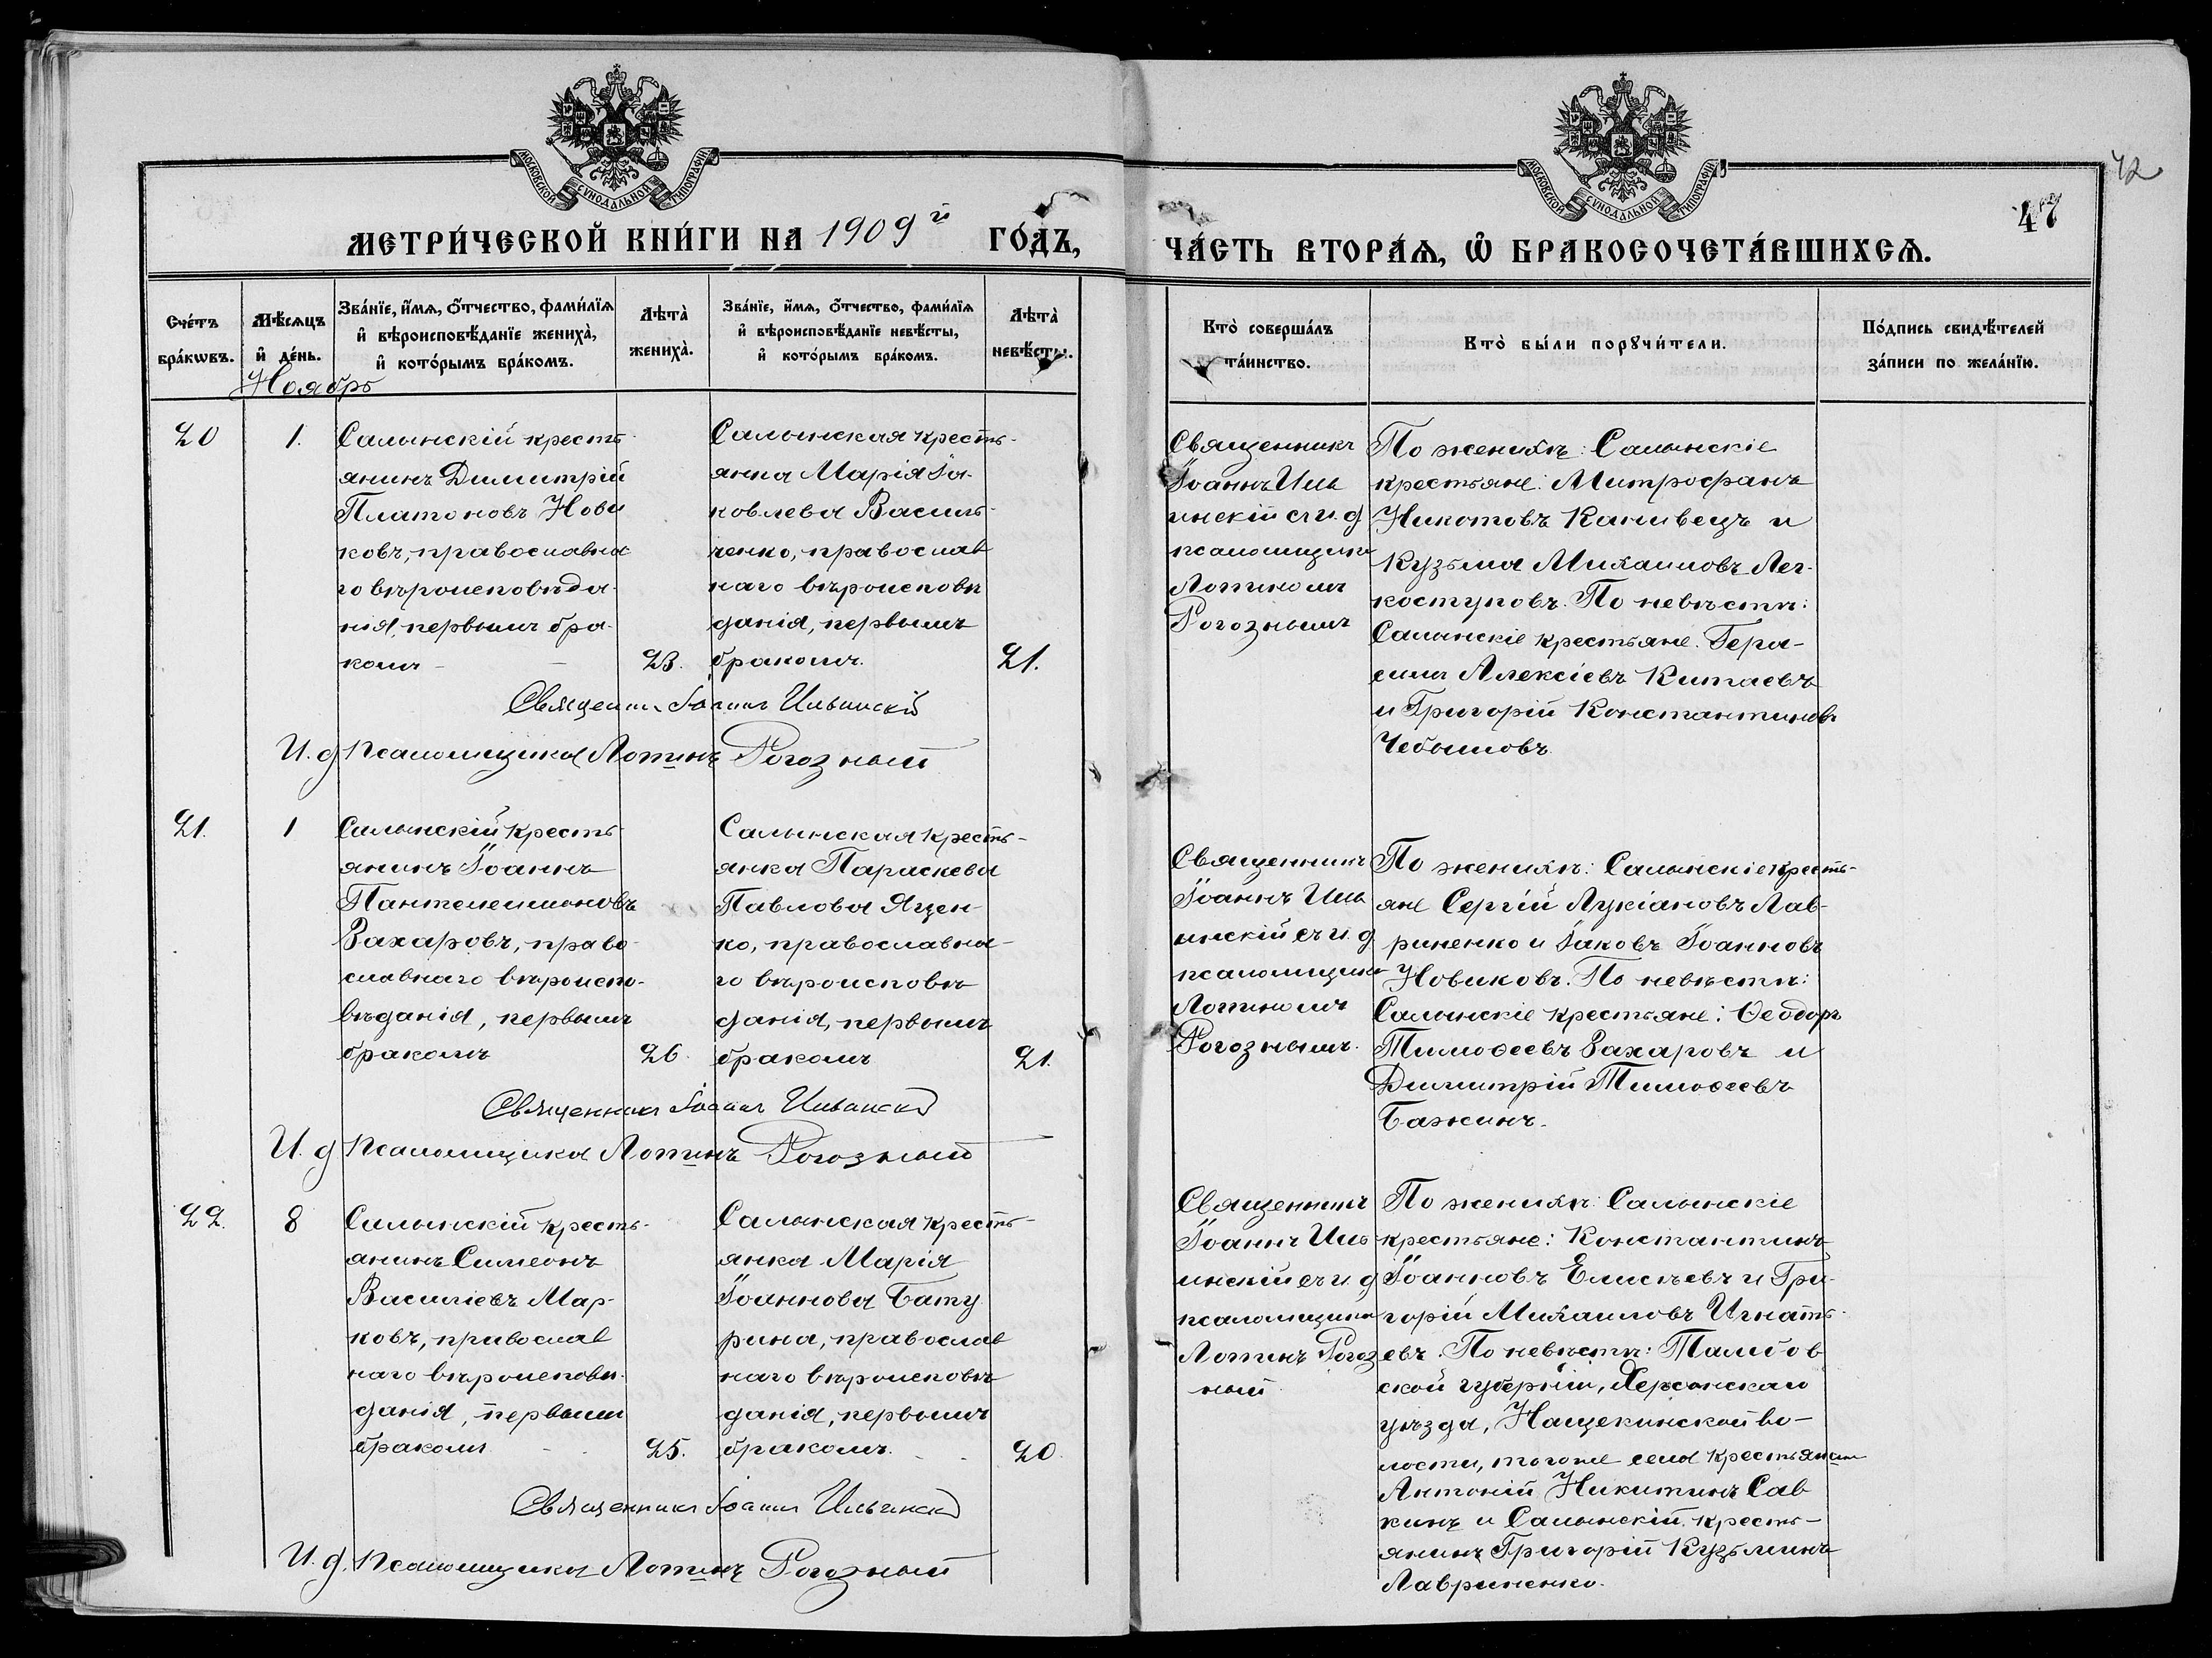 МОСКОВСКОЙ СУНОДАЛЬНОЙ ТИПОГРАФІИ
МЕТРИ́ЧЕСКОЙ КНИ́ГИ НА 1909й ГО́ДЪ,
Сче́тъ бра́кωвъ.
Мѣ́сяцъ и҆ де́нь.
Зва́нїе, и҆́мѧ, ѻ҆́тчество, фами́лїѧ
и҆ вѣроисповѣ́данїе жениха̀,
и҆ кото́рымъ бра́комъ.
Лѣта̀ жениха̀.
Зва́нїе, и҆́мѧ, ѻ҆́тчество, фами́лїѧ
и҆ вѣроисповѣ́данїе невѣ́сты,
и҆ кото́рымъ бра́комъ.
Лѣта̀ невѣ́сты.
Ноябрь
20
1.
Салынскій кресть-
янинъ Димитрій
Платоновъ Нови
ковъ, православна
го вѣроисповѣда-
нія, первымъ бра-
комъ
23.
Салынская кресть-
янка Марія Іа-
ковлева Василь-
ченко, православ
наго вѣроисповѣ
данія, первымъ
бракомъ.
21.
Священникъ Іоаннъ Ильинскій
И. д. псаломщика Логинъ Рогозный
21.
1
Салынскій кресть-
янинъ Іоаннъ
Пантелеимоновъ
Захаровъ, право-
славнаго вѣроиспо-
вѣданія, первымъ
бракомъ
26.
Салынская кресть-
янка Параскева
Павлова Яцен-
ко, православна-
го вѣроисповѣ
данія, первымъ
бракомъ
21.
Священникъ Іоаннъ Ильинскій
И. д. псаломщика Логинъ Рогозный
22.
8
Салынскій кресть-
янинъ Симеонъ
Василіевъ Мар-
ковъ, православ
наго вѣроисповѣ-
данія, первымъ
бракомъ
25.
Салынская кресть-
янка Марія
Іоаннова Бату
рина, православ
наго вѣроисповѣ
данія, первымъ
бракомъ.
20.
Священникъ Іоаннъ Ильинскій
И. д. псаломщика Логинъ Рогозный
42
47
МОСКОВСКОЙ СУНОДАЛЬНОЙ ТИПОГРАФІИ
ЧА́СТЬ ВТОРА́Ѧ, Ѽ БРАКОСОЧЕТА́ВШИХСѦ.
Кто̀ соверша́лъ
та́инство.
Кто̀ бы́ли порꙋчи́тели.
По́дпись свидѣ́телей
за́писи по жела́нїю.
Священникъ
Іоаннъ Иль
инскій съ и. д.
псаломщика
Логиномъ
Рогознымъ
По женихѣ: Салынскіе
крестьяне: Митрофанъ
Никитовъ Канивецъ и
Кузьма Михаиловъ Лег-
коступовъ. По невѣстѣ:
Салынскіе крестьяне: Гера-
симъ Алексіевъ Китаевъ
и Григорій Константиновъ
Чебышовъ
Священникъ
Іоаннъ Иль
инскій съ и. д.
псаломщика
Логиномъ
Рогознымъ.
По женихѣ: Салынскіе кресть-
яне Сергій Лукіановъ Лав-
риненко и Іаковъ Іоанновъ
Новиковъ. По невѣстѣ:
Салынскіе крестьяне: Ѳеодоръ
Тимоѳеевъ Захаровъ и
Димитрій Тимоѳеевъ
Бажинъ.
Священникъ
Іоаннъ Иль
инскій съ и. д.
псаломщика
Логинъ Рогоз
ный
По женихѣ: Салынскіе
крестьяне: Константинъ
Іоанновъ Елисѣевъ и Гри-
горій Михаиловъ Игнать-
евъ. По невѣстѣ: Тамбов
ской губерніи,
уѣзда, Нащекинской во-
лости, того же села крестьянинъ
Антоній Никитинъ Сав
кинъ и Салынскій кресть-
янинъ Григорій Кузьминъ
Лавриненко.